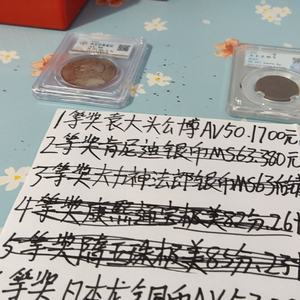 1等奖袁大头公博AV50.1700元
2等奖肯尼迪银币MS63.380元
3等奖大力神法郎银币MS63
4等奖康熙通宝极美82分.261
5等奖隋五铢极美85分.23
等奖日本龙银币AV53